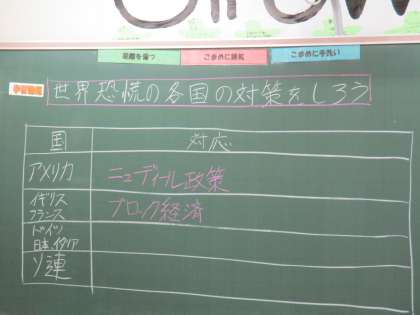 距離を保つ
こまめに換気
こまめに手洗い
学習課題
世界恐慌の各国の対策をしろう
国 対応
アメリカ ニューディール政策
イギリス
フランス ブロック経済
ドイツ
日本、イタリア
ソ連